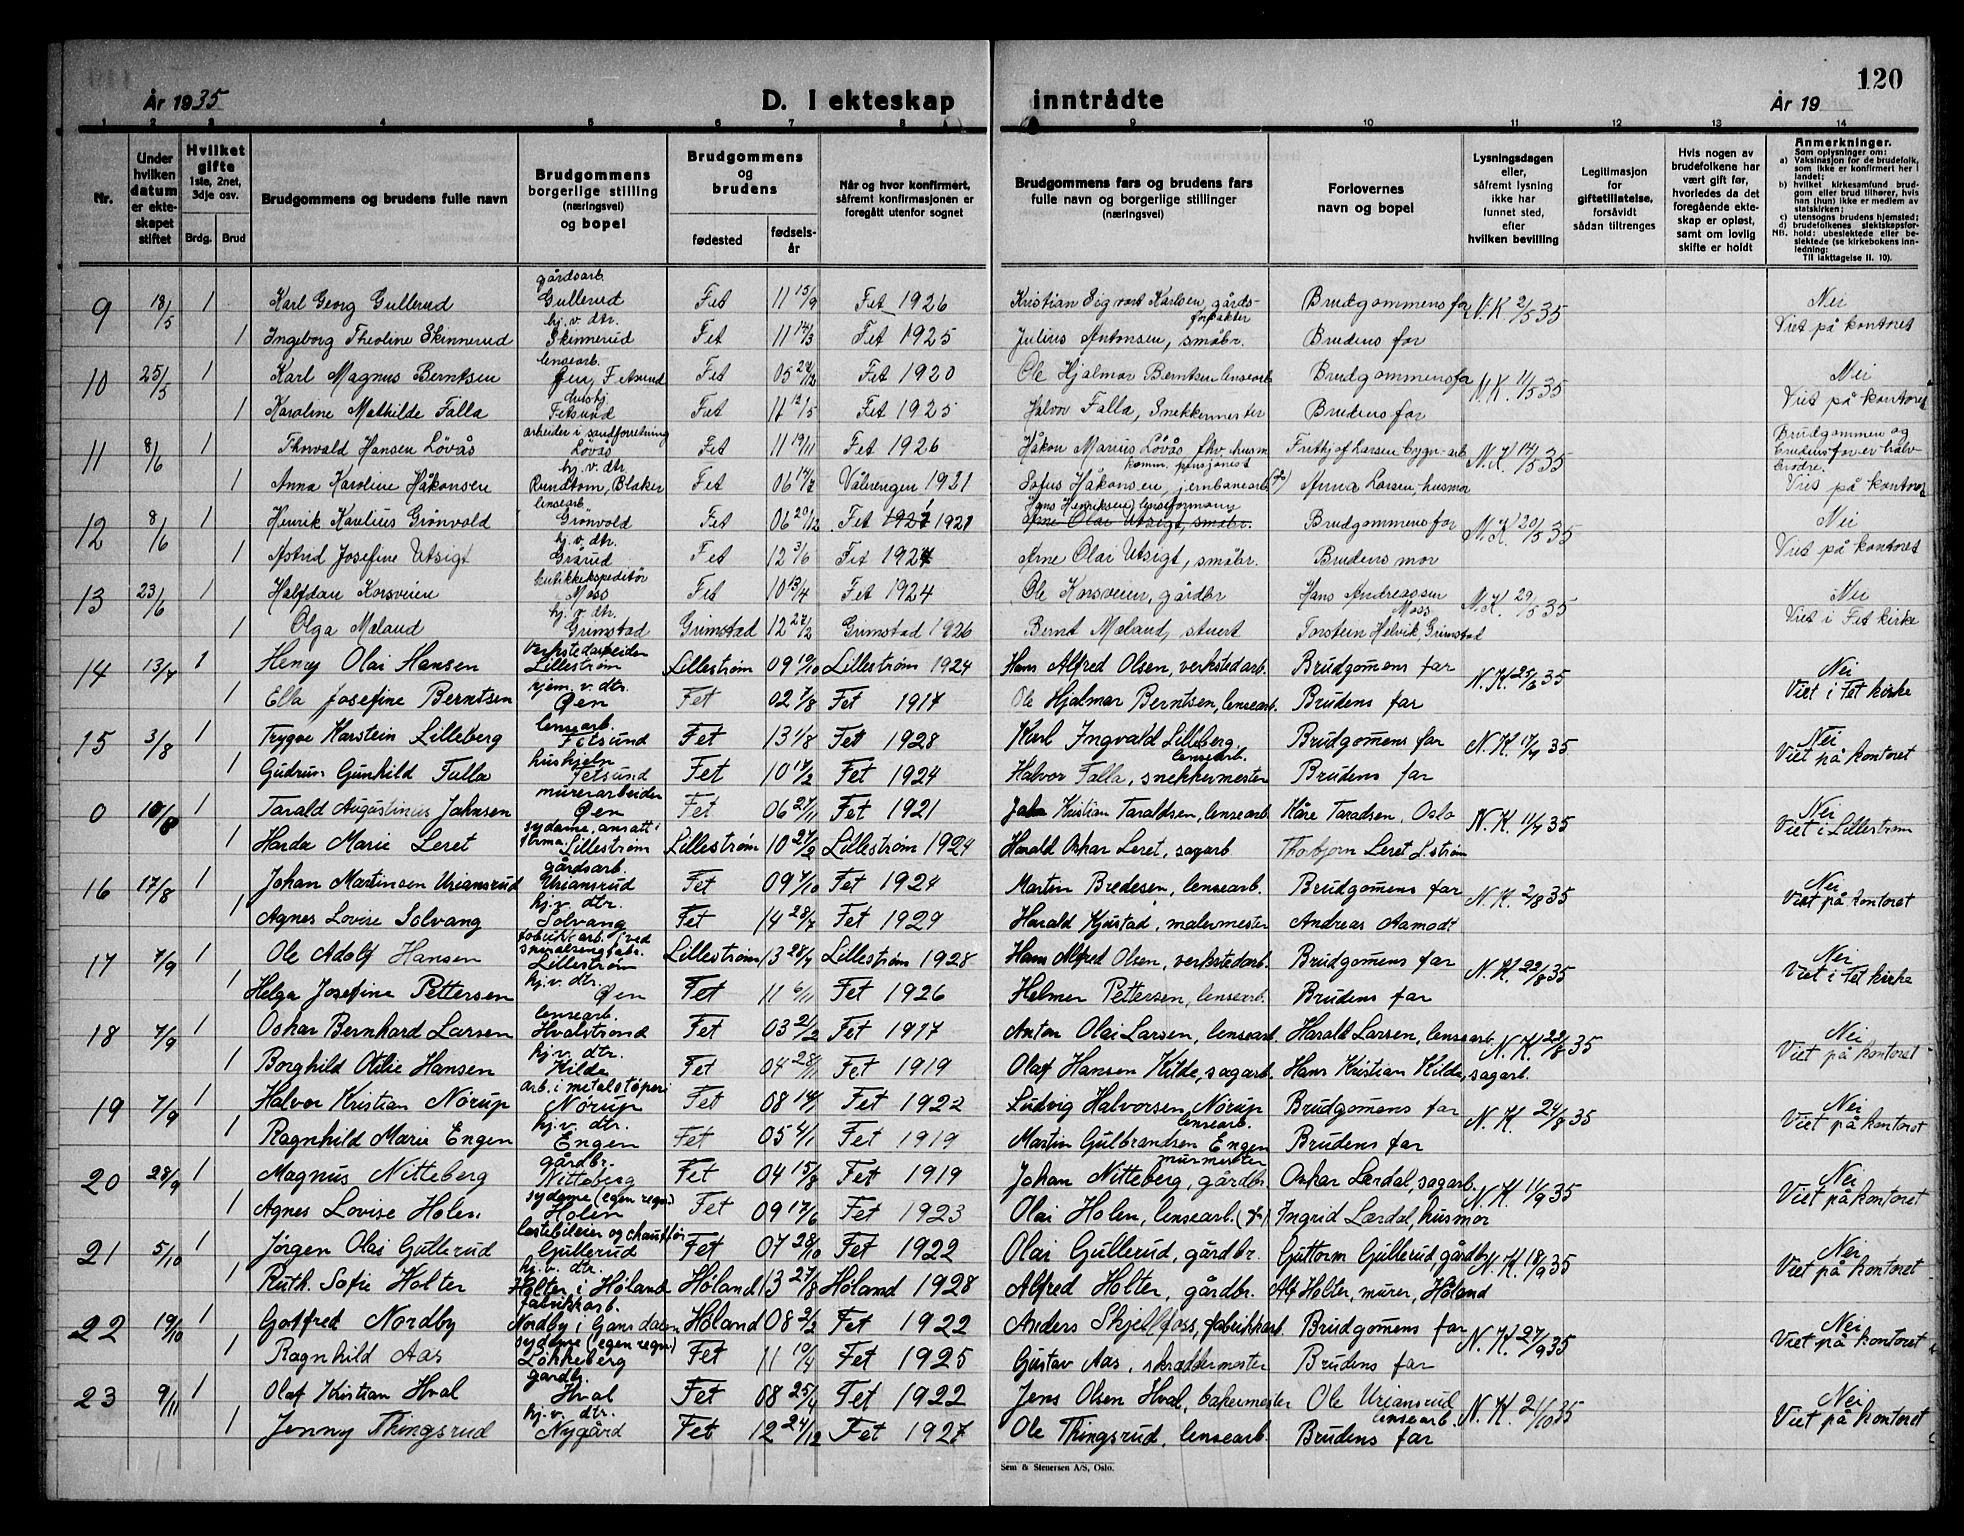 120
År 1935 D. I ekteskap inntrådte År 19
1 2 3 4 5 6 7 8 9 10 11 12 13 14
Nr. | Under hvilken datum er ekteskapet stiftet | Hvilket gifte 1ste, 2net, 3dje osv. Brdg. Brud | Brudgommens og brudens fulle navn | Brudgommens borgerlige stilling (næringsvei) og bopel | Brudgommens og brudens fødested fødselsår | Når og hvor konfirmert, såfremt konfirmasjonen er foregått utenfor sognet | Brudgommens fars og brudens fars fulle navn og borgerlige stillinger (næringsvei) | Forlovernes navn og bopel | Lysningsdagen eller, såfremt lysning ikke har funnet sted, efter hvilken bevilling | Legitimasjon for giftetillatelse, forsåvidt sådan tiltrenges | Hvis nogen av brudefolkene har vært gift før, hvorledes da det foregående ekteskap er opløst, samt om lovlig skifte er holdt | Anmerkninger. Som oplysninger om: a) Vaksinasjon for de brudefolk, som ikke er konfirmert her i landet; b) hvilket kirkesamfund brudgom eller brud tilhører, hvis han (hun) ikke er medlem av statskirken; c) utensogns brudens hjemsted; d) brudefolkenes slektskapsforhold: ubeslektede eller beslektede (se kirkebokens innledning: NB. Til iakttagelse II. 10).
9 18/5 1 Karl Georg Gullerud gårdsarb. Gullerud Fet 11 15/9 Fet 1926 Kristian Sigvart Karlsen, gårdsforpakter Brudgommens far N.K. 2/5 35 Nei
1 Ingeborg Theoline Skinnerud hj. v. dtr. Skinnerud Fet 11 14/3 Fet 1925 Julius Antonsen, småbr. Brudens far Viet på kontoret
10 25/5 1 Karl Magnus Berntsen lensearb. Øen, Fetsund Fet 05 24/12 Fet 1920 Ole Hjalmar Berntsen lensearb Brudgommens far N.K. 11/5 35 Nei
1 Karoline Mathilde Falla hushj. Fetsund Fet 11 12/5 Fet 1925 Halvor Falla, Snekkermester Brudens far Viet på kontoret
11 8/6 1 Thorvald Hansen Lövås arbeider i sandforretning Lövås Fet 11 19/11 Fet 1926 Håkon Marius Lövås fhv. husm komm. pensjonist Frithjof Larsen bygn-arb N.K. 14/5 35 Brudgommen og brudens far er halvbrödre.
1 Anna Karoline Håkonsen hj. v. dtr. Rundtom, Blaker Fet 06 14/7 Vålerengen 1921 Sofus Håkonsen jernbanearb. Anna Larsen, husmor Viet på kontoret
12 8/6 1 Henrik Karelius Grönvold lensearb. Grönvold Fet 06 20/12 Fet 1921 Hans Henriksen lenseformann Arne Olai Utsigt, småbr. Brudgommens far N.K. 20/5 35 Nei
1 Astrid Josefine Utsigt hj. v. dtr. Grårud Fet 12 3/6 Fet 1927 Arne Olai Utsigt, småbr. Brudens mor Viet på kontoret
13 23/6 1 Halfdan Korsveien butikkekspeditör Moss Fet 10 13/4 Fet 1924 Ole Korsveien, gårdbr Hans Andreassen Moss N.K. 29/5 35 Nei
1 Olga Møland hj. v. dtr. Grimstad Grimstad 12 27/2 Grimstad 1926 Bernt Møland, stuert Torstein Helvik Grimstad Viet i Fet kirke
14 13/7 1 Henry Olai Hansen Verkstedarbeider Lillestrøm Lillestrøm 09 19/10 Lillestrøm 1924 Hans Alfred Olsen, verkstedarb. Brudgomens far N.K. 25/6 35 Nei
1 Ella Josefine Berntsen hjem. v. dtr. Øen Fet 02 7/8 Fet 1917 Ole Hjalmar Berntsen, lensearb. Brudens far Viet i Fet kirke
15 3/8 1 Trygve Karstein Lilleberg lensearb. Fetsund Fet 13 1/8 Fet 1928 Karl Ingvald Lilleberg, lensearb. Brudgomens far N.K. 17/7 35 Nei
1 Gudrun Gunhild Falla hushjelp Fetsund Fet 10 17/2 Fet 1924 Halvor Falla, snekkermester Brudens far Viet på kontoret
0 10/8 1 Tarald Augustinus Jahnsen murerarbeider Øen Fet 06 27/11 Fet 1921 Kristian Taraldsen, lensearb Kåre Taradsen, Oslo N.K. 11/7 35 Nei
1 Harda Marie Leret sydame, ansatt i firma. Lillestrøm Lillestrøm 10 27/2 Lillestrøm 1924 Harald Oskar Leret, sagarb Thobjorn Leret L.strøm Viet i Lillestrøm
16 17/8 1 Johan Martinsen Uriansrud gårdsarb. Uriansrud Fet 09 7/10 Fet 1924 Martin Bredesen, lensearb. Brudgomens far N.K. 2/8 35 Nei
1 Agnes Lovise Solvang hj. v. dtr. Solvang Fet 14 28/7 Fet 1929 Harald Kjustad, malermester Andreas Aamodt Viet på kontoret
17 7/9 1 Ole Adolf Hansen fabrikkarb. ved Lillestrøm Lillestrøm 13 28/7 Lillestrøm 1928 Hans Alfred Olsen, verkstedarb. Brudgomens far N.K. 22/8 35 Nei
1 Helga Josefine Pettersen hj. v. dtr. Øen Fet 11 6/11 Fet 1926 Helmer Pettersen, lensearb. Brudens far Viet i Fet kirke
18 7/9 1 Oskar Bernhard Larsen lensearb. Hvalstrand Fet 03 2/2 Fet 1917 Anton Olai Larsen, lensearb. Harald Larsen, lensearb N.K. 22/8 35 Nei
1 Borghild Otilie Hansen hj. v. dtr. Kilde Fet 04 28/11 Fet 1919 Olaf Hansen Kilde, sagarb. Hans Kristian Kilde, sagarb. Viet på kontoret
19 7/9 1 Halvor Kristian Nörup arb. i metalstøperi Nörup Fet 08 14/1 Fet 1922 Ludvig Halvorsen Nörup lensearb. Brudgomens far N.K. 24/8 35 Nei
1 Ragnhild Marie Engen hj. v. dtr. Engen Fet 05 4/1 Fet 1919 Martin Gulbrandsen Engen murmester Brudens far Viet på kontoret
20 28/9 1 Magnus Nitteberg gårdbr. Nitteberg Fet 04 15/8 Fet 1919 Johan Nitteberg, gårdbr. Oskar Lærdal, sagarb. N.K. 11/9 35 Nei
1 Agnes Lovise Holen sydame (egen regn.) Holen Fet 09 17/6 Fet 1923 Olai Holen, lensearb. Ingrid Lærdal, husmor Viet på kontoret
21 5/10 1 Jørgen Olai Gullerud lastebileier og chauffør Gullerud Fet 07 28/10 Fet 1922 Olai Gullerud, gårdbr. Guttorm Gullerud, gårdbr N.K. 18/9 35 Nei
1 Ruth Sofie Holter hj. v. dtr. Holter i Høland Høland 13 27/8 Høland 1928 Alfred Holter, gårdbr. Alf Holter, murer, Høland Viet på kontoret
22 19/10 1 Gotfred Nordby fabrikkarb. Nordby i Gansdalen Høland 08 2/2 Fet 1922 Anders Skjellfoss, fabrikkarb. Brudgomens far N.K. 27/9 35 Nei
1 Ragnhild Aas sydame (egen regn.) Løkkeberg Fet 11 10/4 Fet 1925 Gustav Aas, skræddermester Brudens far Viet på kontoret
23 9/11 1 Olaf Kristian Hval gårdbr. Hval Fet 08 25/4 Fet 1922 Jens Olsen Hval, bakermester Ole Uriansrud lensearb. N.K. 21/10 35 Nei
1 Jenny Thingsrud hj. v. dtr. Nygård Fet 12 24/12 Fet 1927 Ole Thingsrud, lensearb. Brudens far Viet på kontoret
Sem & Stenersen A/S, Oslo.